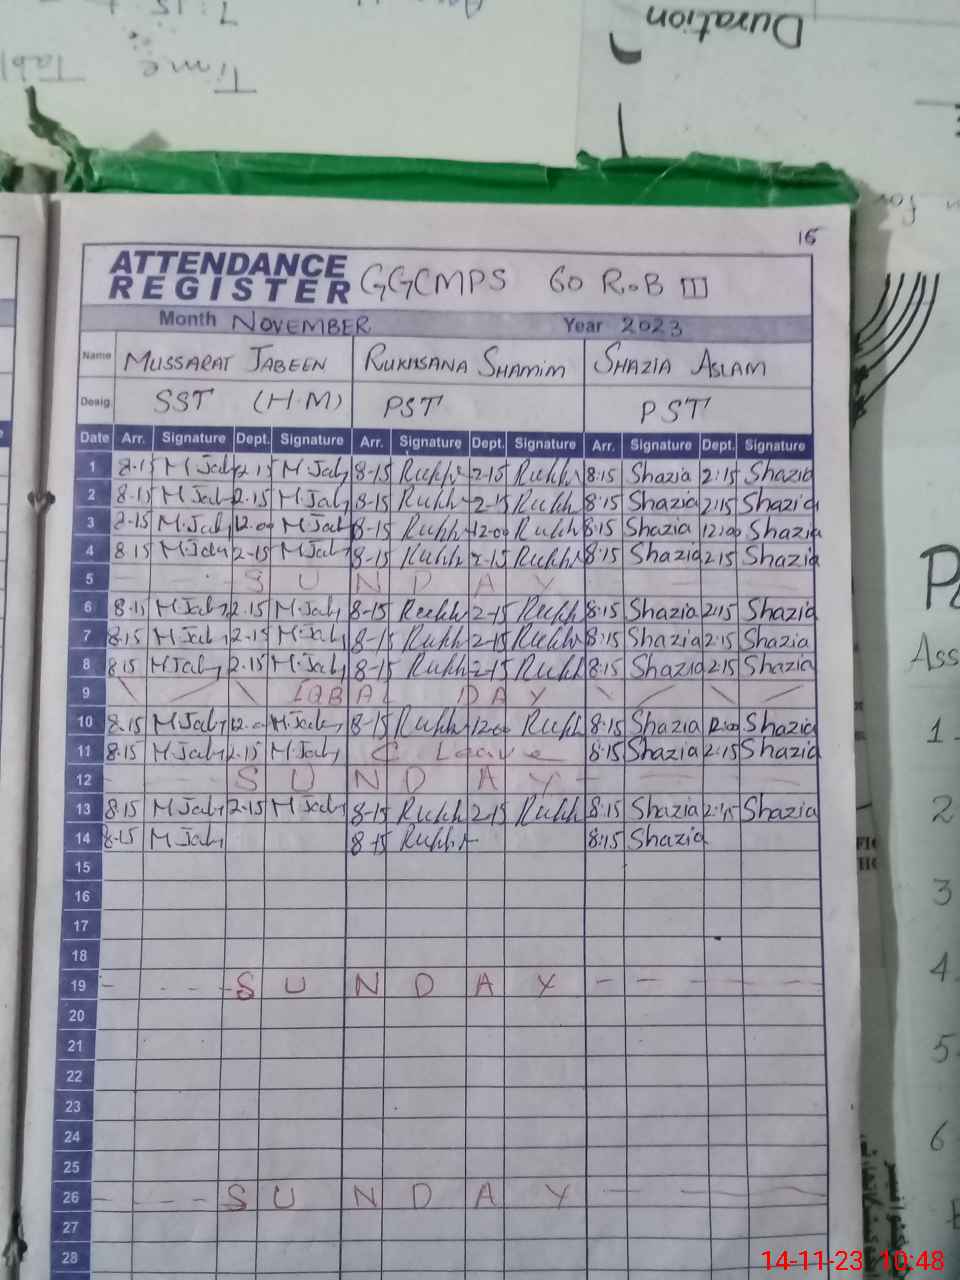 Duration
Time Tabl
7:15
16
ATTENDANCE REGISTER GGCMPS 60 R.B III
Month NOVEMBER Year 2023
Name MUSSARAT JABEEN RUKHSANA SHAMIM SHAZIA ASLAM
Desig. SST (H.M) PST PST
Date Arr. Signature Dept. Signature Arr. Signature Dept. Signature Arr. Signature Dept. Signature
1 8-15 M Jab 2.15 M Jab 8-15 Rukh 2-15 Rukh 8:15 Shazia 2:15 Shazia
2 8-15 M Jab 2.15 M Jab 8-15 Rukh 2-15 Rukh 8:15 Shazia 2:15 Shazia
3 8-15 M Jab 12.00 M Jab 8-15 Rukh 12-00 Rukh 8:15 Shazia 12:00 Shazia
4 8.15 M Jab 2-15 M Jab 8-15 Rukh 2-15 Rukh 8:15 Shazia 2:15 Shazia
5 SUNDAY
6 8.15 M Jab 2.15 M Jab 8-15 Rukh 2-15 Rukh 8:15 Shazia 2:15 Shazia
7 8.15 M Jab 2-15 M Jab 8-15 Rukh 2-15 Rukh 8:15 Shazia 2:15 Shazia
8 8.15 M Jab 2.15 M Jab 8-15 Rukh 2-15 Rukh 8:15 Shazia 2:15 Shazia
9 IQBAL DAY
10 8.15 M Jab 12.00 M Jab 8-15 Rukh 12.00 Rukh 8:15 Shazia 12:00 Shazia
11 8.15 M Jab 2.15 M Jab C Leave 8:15 Shazia 2:15 Shazia
12 SUNDAY
13 8.15 M Jab 2.15 M Jab 8-15 Rukh 2-15 Rukh 8:15 Shazia 2:15 Shazia
14 8-15 M Jab 8-15 Rukh 8:15 Shazia
15
16
17
18
19 SUNDAY
20
21
22
23
24
25
26 SUNDAY
27
28
Ass
1
2
3
4
5
6
14-11-23 10:48